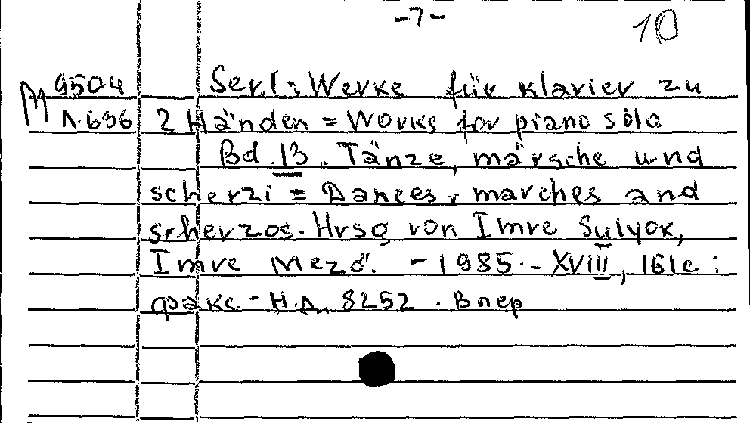 -7-
10
М 9504 Ser I: Werke für Klavier zu
Л-636 2 Händen = Works for piano solo
Bd. 13. Tänze, märsche und
scherzi = Dances, marches and
scherzos. Hrsg von Imre Sulyok,
Imre Mező. - 1985. - XVIII, 161 с :
факс - Н.Д. 8252. В пер